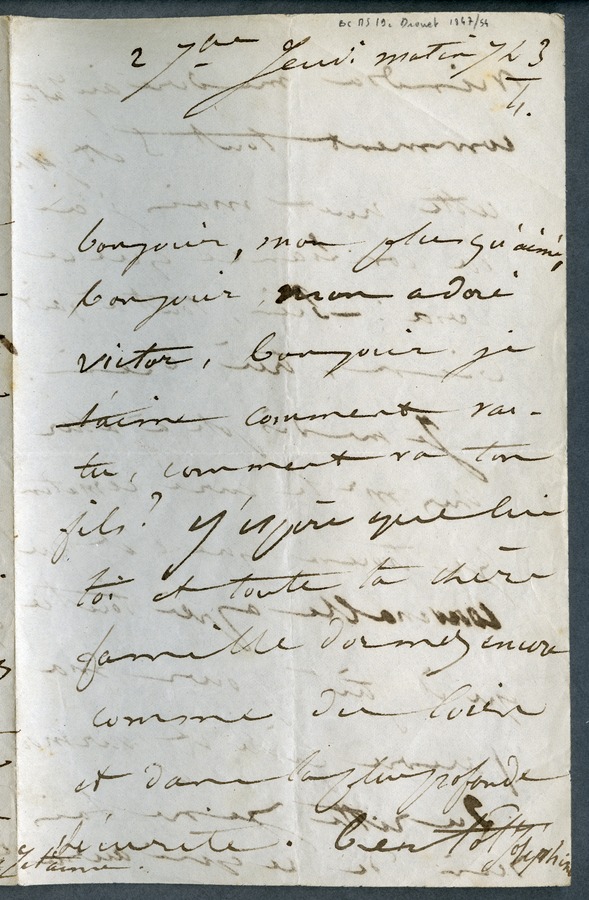 BC MS 19c Drouet 1847/54
2 7bre Jeudi matin 7 h 3/4.
bonjour, mon plus qu'aimé,
bonjour mon adoré
victor, bonjour je
t'aime comment vas-
tu, comment va ton
fils? j'espère que lui
toi et toute ta chère
famille dormez encore
comme du loirs
et dans la plus profonde
sécurité.